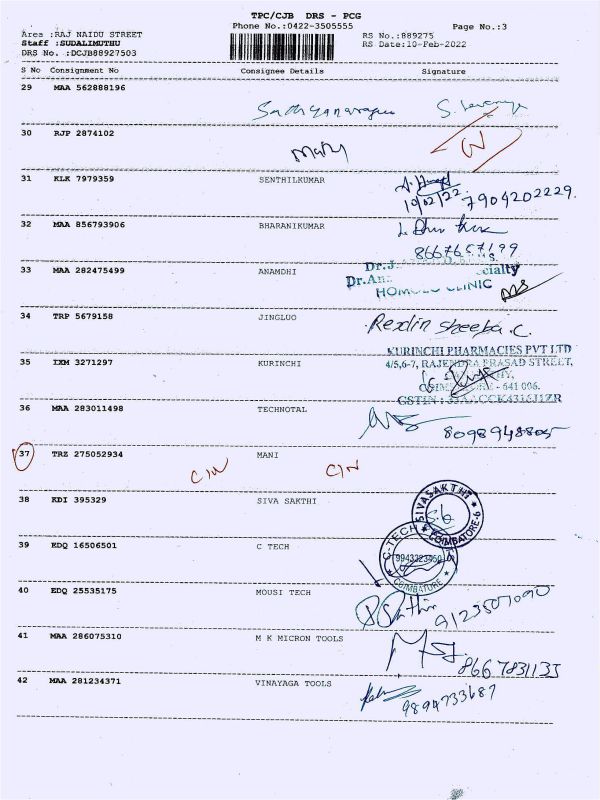 TPC/CJB DRS - PCG
Phone No.:0422-3505555 Page No.:3
Area :RAJ NAIDU STREET RS No.:889275
Staff :SUDALIMUTHU RS Date:10-Feb-2022
DRS No. :DCJB88927503
S No Consignment No Consignee Details Signature
29 MAA 562888196
30 RJP 2874102
Mary
31 KLK 7979359 SENTHILKUMAR
10/02/22 7904202229
32 MAA 856793906 BHARANIKUMAR
8667657199
33 MAA 282475499 ANAMDHI
Dr.
HOMOEO CLINIC
34 TRP 5679158 JINGLUO
Rexlin Sheeba.C.
35 IXM 3271297 KURINCHI
KURINCHI PHARMACIES PVT LTD
4/5,6-7, RAJENDRA PRASAD STREET,
- 641 006.
GSTIN : 33AACCK4316J1ZR
36 MAA 283011498 TECHNOTAL
8098948805
37 TRZ 275052934 MANI
C/N C/N
38 KDI 395329 SIVA SAKTHI
SIVASAKTHI
COIMBATORE-6
39 KDQ 16506501 C TECH
C-TECH
COIMBATORE
40 EDQ 25535175 MOUSI TECH
9123507090
41 MAA 286075310 M K MICRON TOOLS
8667831133
42 MAA 281234371 VINAYAGA TOOLS
9894733687